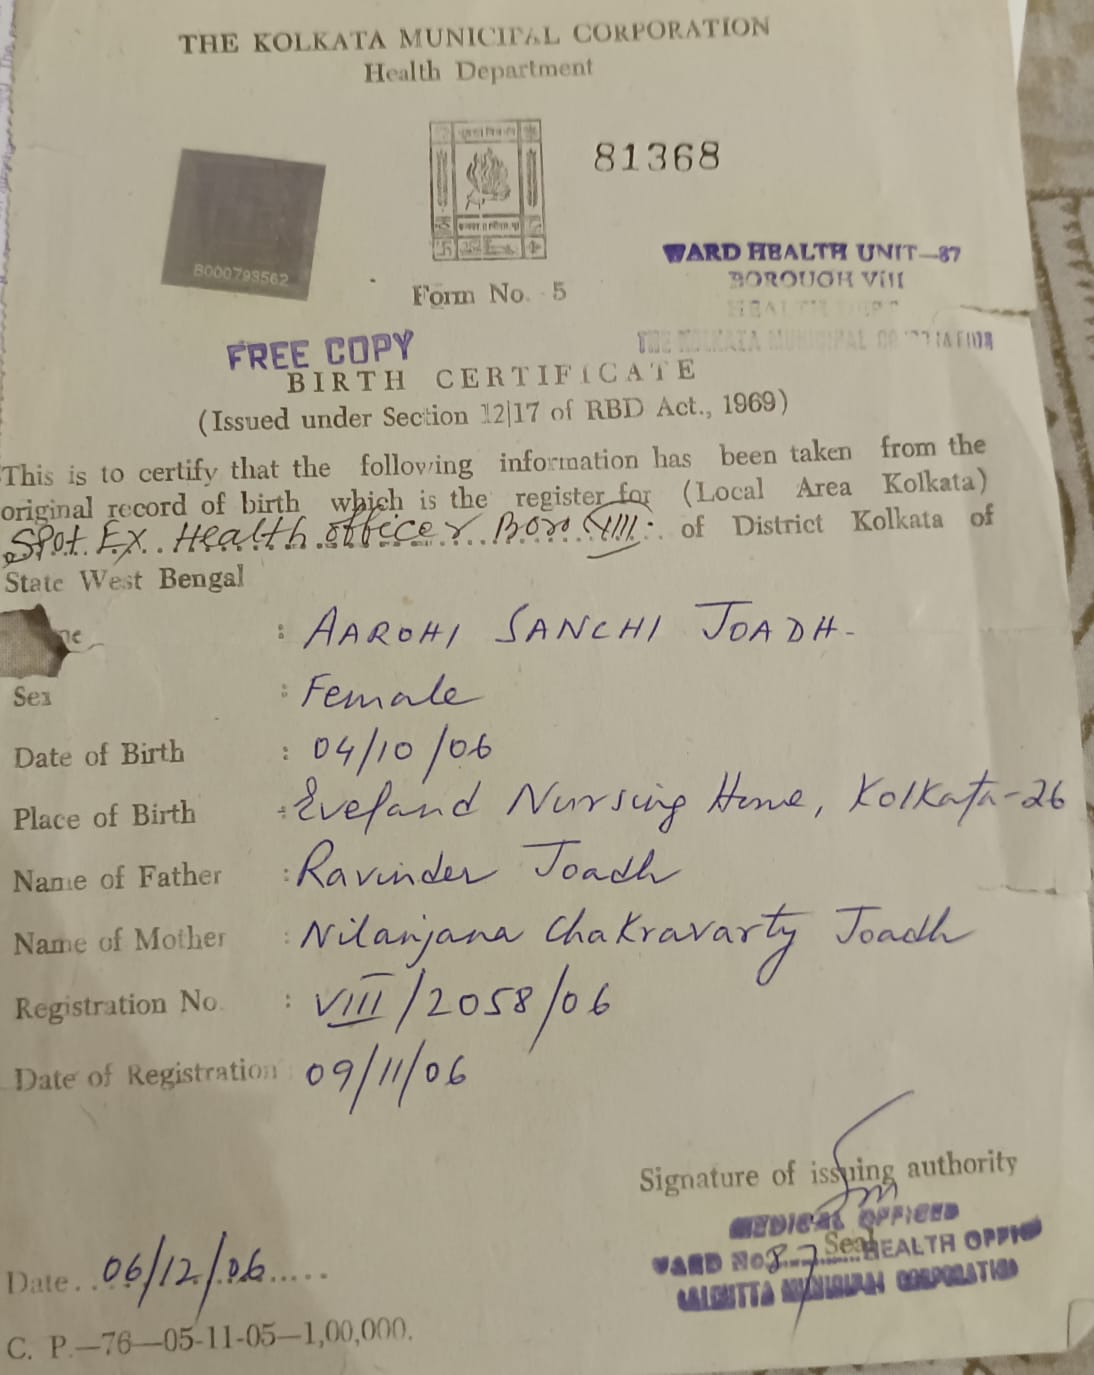 THE KOLKATA MUNICIPAL CORPORATION
Health Department
81368
B000793562
WARD HEALTH UNIT—87
BOROUGH VIII
Form No. 5
THE KOLKATA MUNICIPAL CORPORATION
FREE COPY
BIRTH CERTIFICATE
(Issued under Section 12|17 of RBD Act., 1969)
This is to certify that the following information has been taken from the
original record of birth which is the register for (Local Area Kolkata)
Spot Ex. Health officer Boro VIII. of District Kolkata of
State West Bengal
: AAROHI SANCHI JOADH-
Sex : Female
Date of Birth : 04/10/06
Place of Birth : Eveland Nursing Home, Kolkata-26
Name of Father : Ravinder Joadh
Name of Mother : Nilanjana Chakravarty Joadh
Registration No. : VIII/2058/06
Date of Registration : 09/11/06
Signature of issuing authority
MEDICAL OFFICER
Seal
WARD No 87 HEALTH OFFICE
CALCUTTA MUNICIPAL CORPORATION
Date.. 06/12/06.....
C. P.—76—05-11-05—1,00,000.